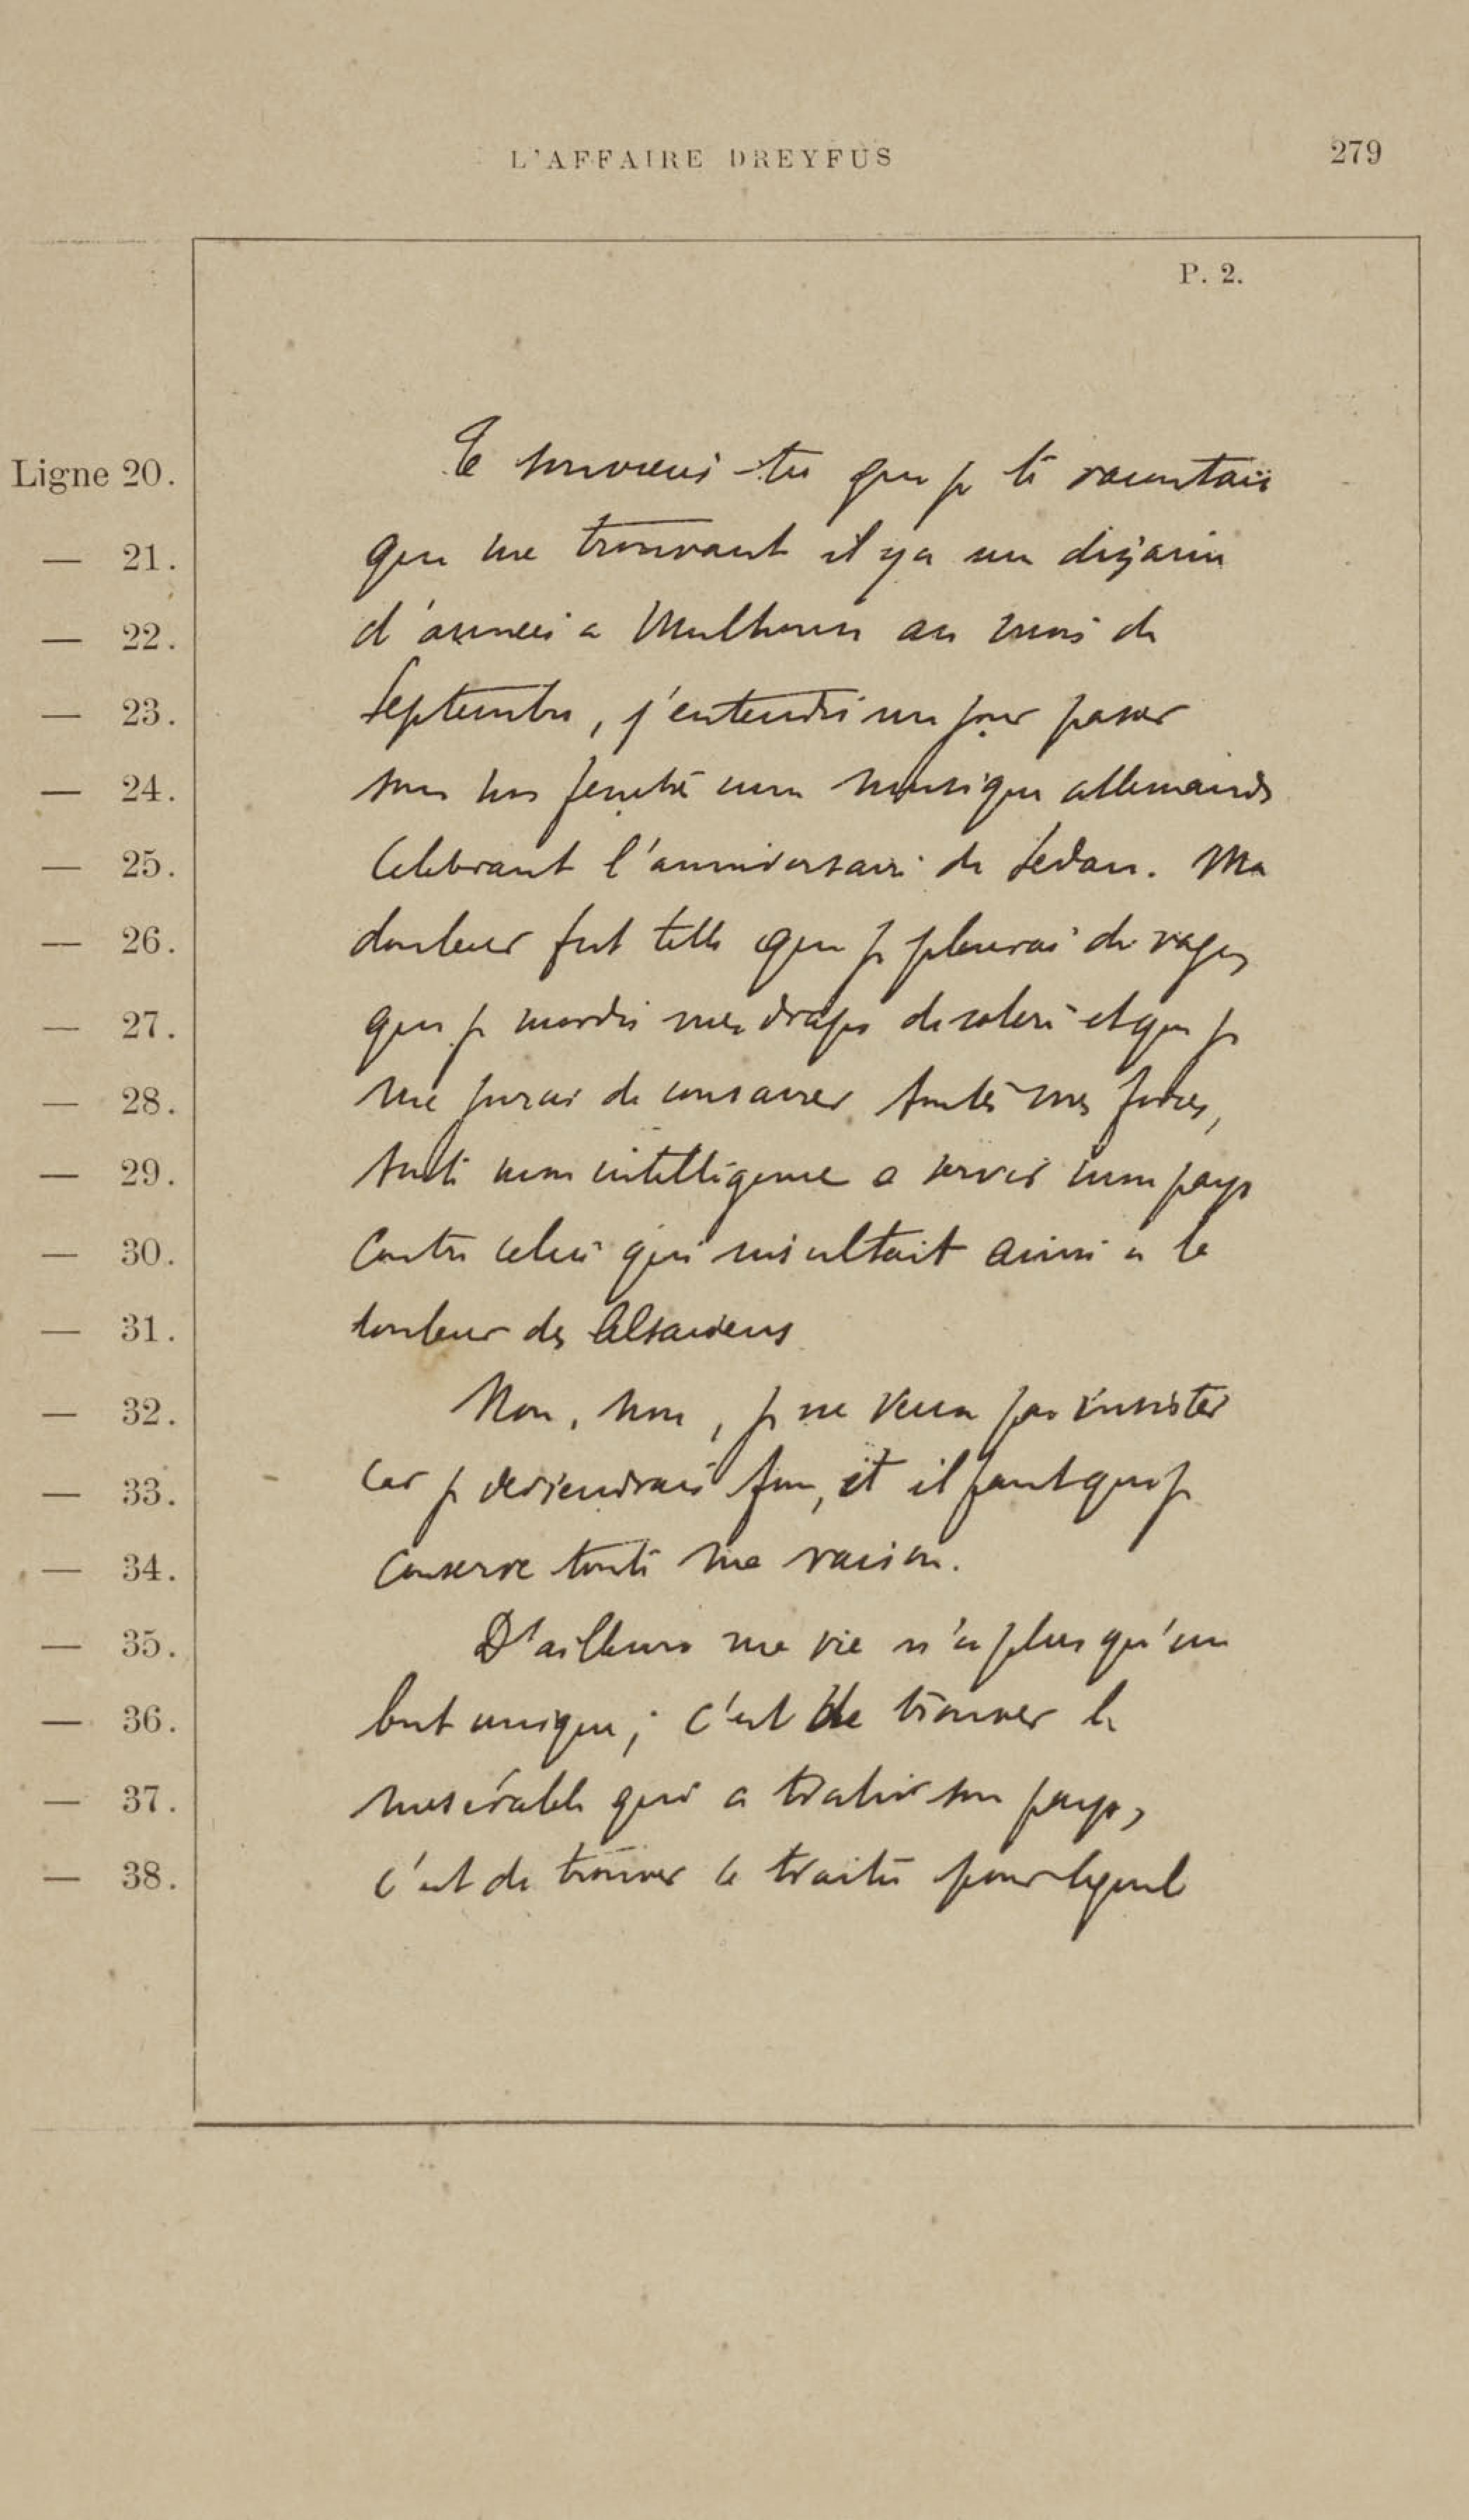 L'AFFAIRE DREYFUS 279
P. 2.
Ligne 20. Te souviens-tu que je te racontais
— 21. que me trouvant il y a une dizaine
— 22. d'années a Mulhouse au mois de
— 23. Septembre, j'entendis un jour passer
— 24. sous nos fenetres une musique allemande
— 25. Celebrant l'anniversaire de Sedan. Ma
— 26. douleur fut telle que je pleurai de rage,
— 27. que je mordis mes draps de colere et que je
— 28. me jurai de consacrer toutes mes forces,
— 29. toute mon intelligence a servir mon pays
— 30. Contre celui qui insultait ainsi a la
— 31. douleur des Alsaciens
— 32. Non, non, je ne veux pas insister
— 33. Car je deviendrais fou, et il faut que je
— 34. Conserve toute ma raison.
— 35. D'ailleurs ma vie n'a plus qu'un
— 36. but unique; c'est de trouver le
— 37. misérable qui a trahir son pays,
— 38. c'est de trouver le traitre pour lequel